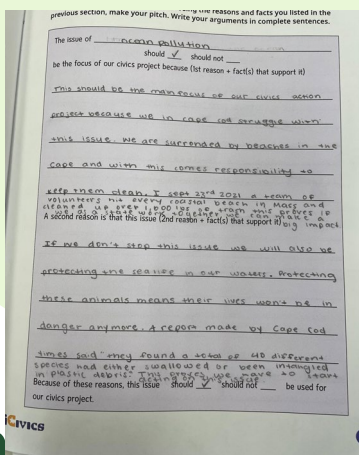 the reasons and facts you listed in the
previous section, make your pitch. Write your arguments in complete sentences.
The issue of ocean pollution
should ✓ should not
be the focus of our civics project because (1st reason + fact(s) that support it)
This should be the main focus of our civics action
project because we in cape cod struggle with
this issue. We are surronded by beaches in the
cape and with this comes responsibility to
keep them clean. I sept 23rd 2021 a team of
volunteers hit every coastal beach in Mass and
cleaned up over 1,000 lbs of trash this proves if
we as a state work together we can make a
A second reason is that this issue (2nd reason + fact(s) that support it) big impact
If we don't stop this issue we will also be
protecting the sealife in our waters. Protecting
these animals means their lives won't be in
danger anymore. A report made by Cape Cod
times said "they found a total of 40 different
species had either swallowed or been intangled
in plastic debris. This proves we have to start
acting on this issue.
Because of these reasons, this issue should ✓ should not be used for
our civics project.
iCivics